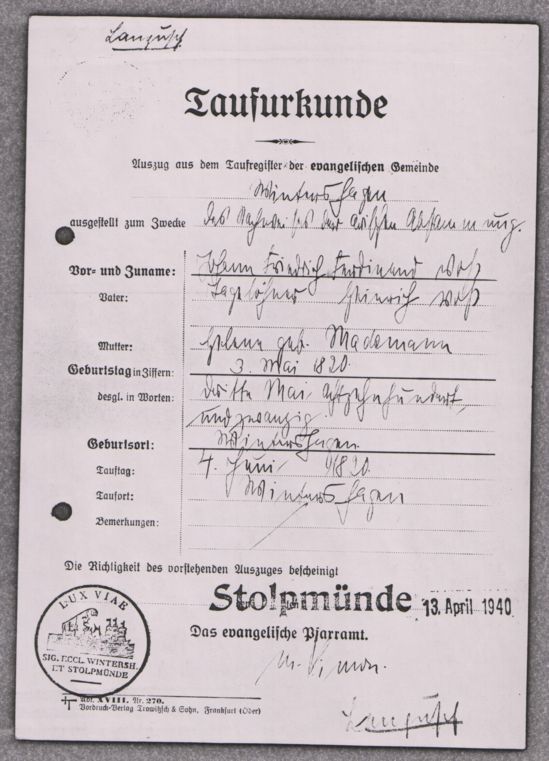 Taufurkunde
Auszug aus dem Taufregister der evangelischen Gemeinde
Wintershagen
ausgestellt zum Zwecke des Nachweises der arischen Abstammung.
Vor- und Zuname: Johann Friedrich Ferdinand Voß
Vater: Tagelöhner Heinrich Voß
Mutter: Helene geb. Mademann
Geburtstag in Ziffern: 3. Mai 1820
desgl. in Worten: dritte Mai achtzehnhundert
und zwanzig.
Geburtsort: Wintershagen
Tauftag: 4. Juni 1820.
Taufort: Wintershagen
Bemerkungen:
Die Richtigkeit des vorstehenden Auszuges bescheinigt
Stolpmünde 13. April 1940
Das evangelische Pfarramt.
LUX VIAE
SIG. ECCL. WINTERSH.
ET STOLPMÜNDE
Abt. XVIII. Nr. 270.
Vordruck-Verlag Trowitzsch & Sohn, Frankfurt (Oder)